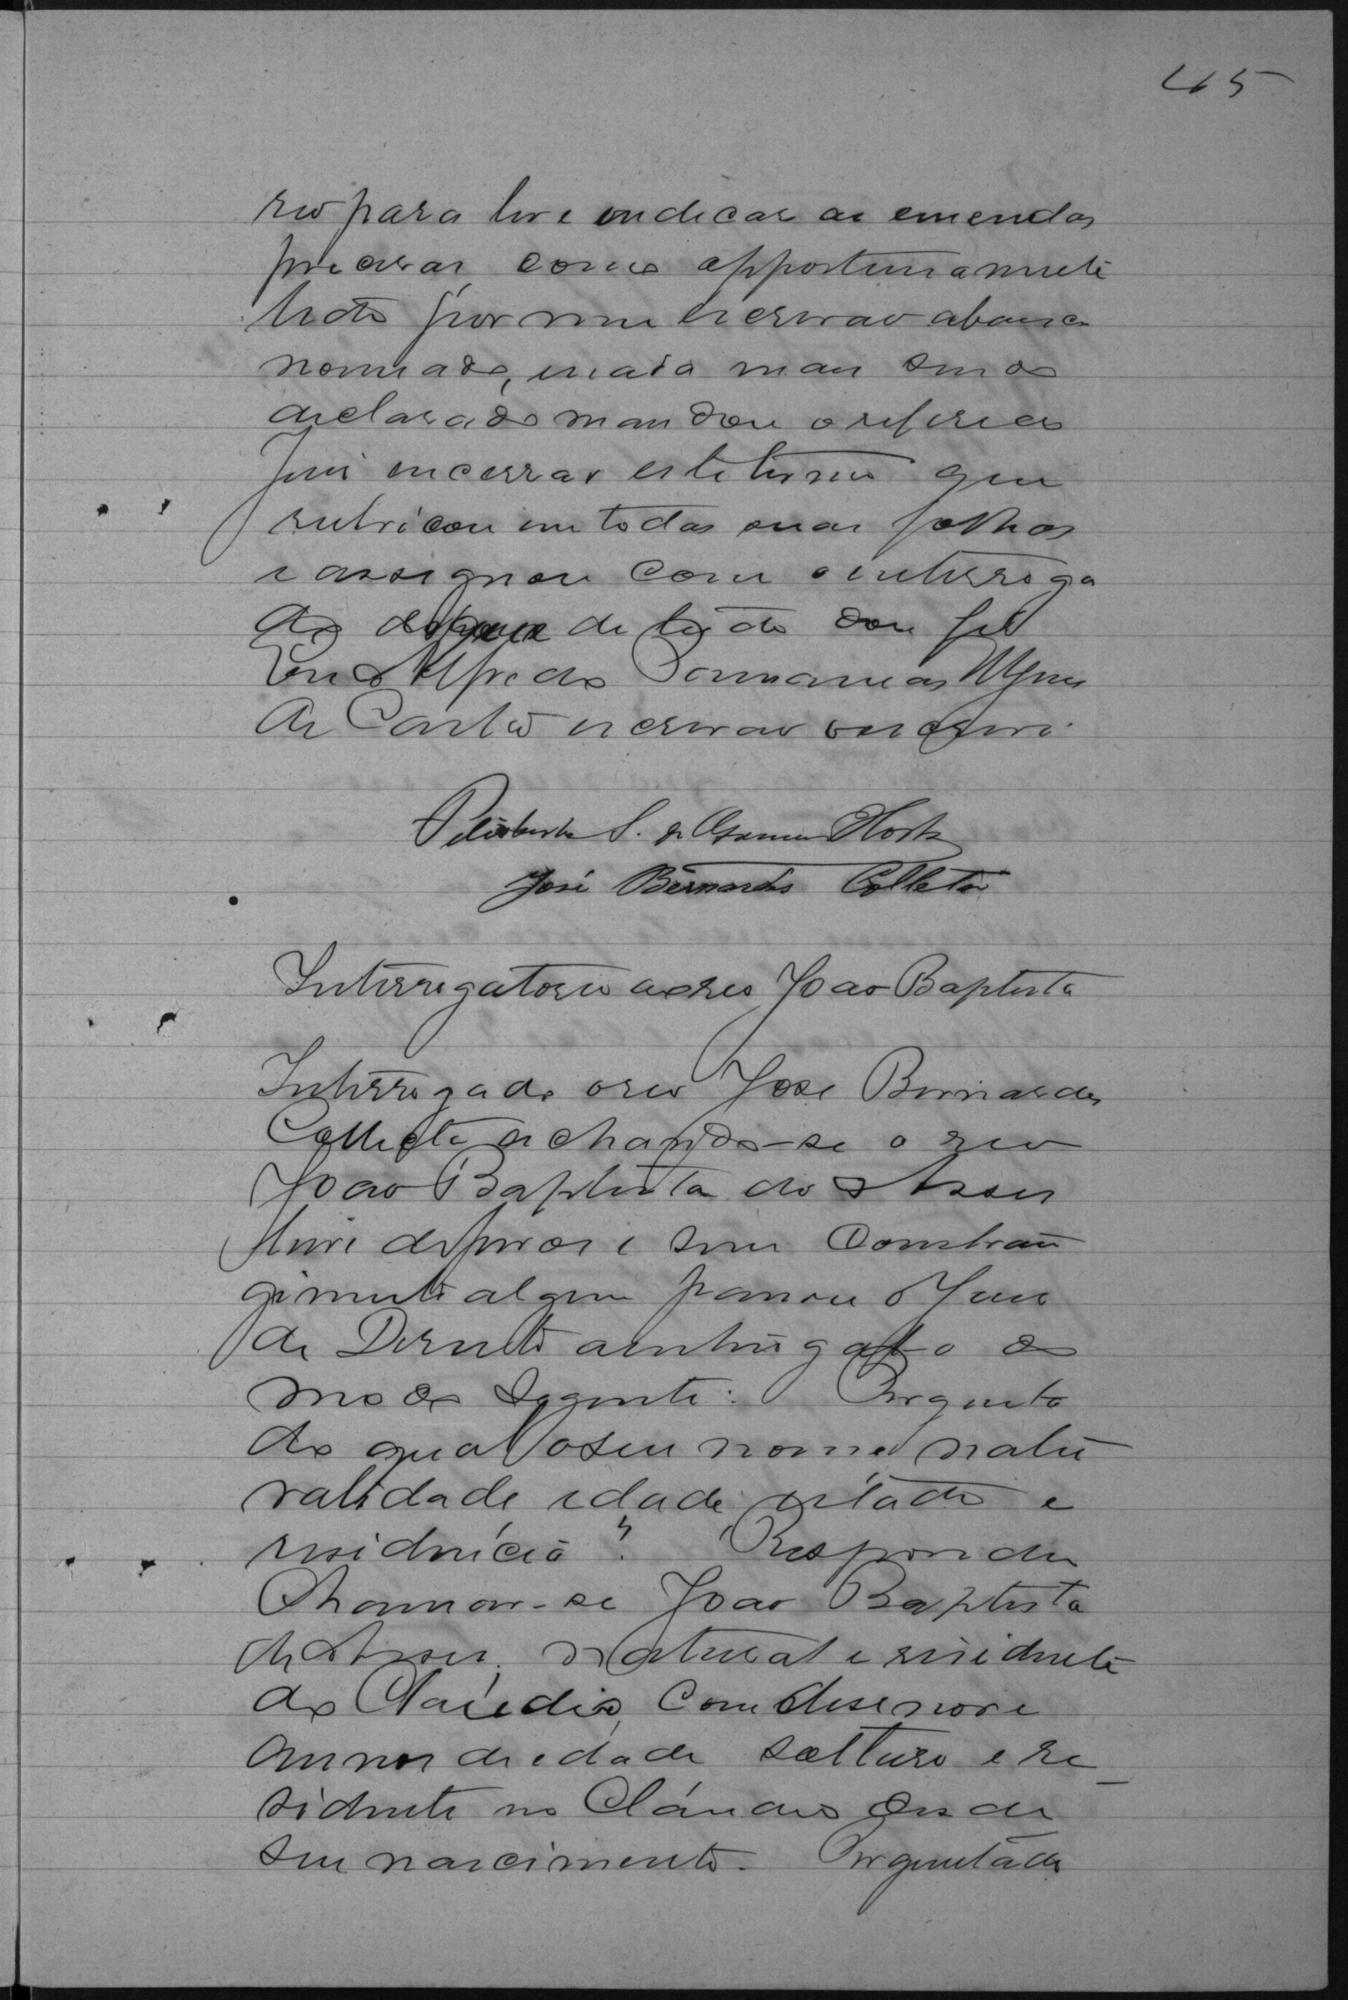 45
reo para ler e indicar as emendas
precisas, como opportunamente
lido por mim escrivão abaixo
nomeado, e nada mais sendo
declarado mandou o referido
Juiz encerrar este termo que
rubricou em todas suas folhas
e assignou com o interroga
do depois de lido dou fé
Eu Alfredo
de Castro escrivão o escrevi.
S. de Horta
José Bernardes Colleto
Interrogatorio ao reo João Baptista
Interrogado o reo Jose Bernardes
Colleto achando-se o reo
João Baptista de Assis
livre de ferros e sem constran
gimento algum passou o Juiz
de Direito a interrogal-o do
modo segente: Pergunta
do qual o seu nome natu
ralidade, idade, estado e
residencia? Respondeu
Chamar-se João Baptista
de Assis, natural e residente
do Claudio, com desenove
annos de edade solteiro e re
sidente no Cláudio desde
seu nascimento. Perguntado